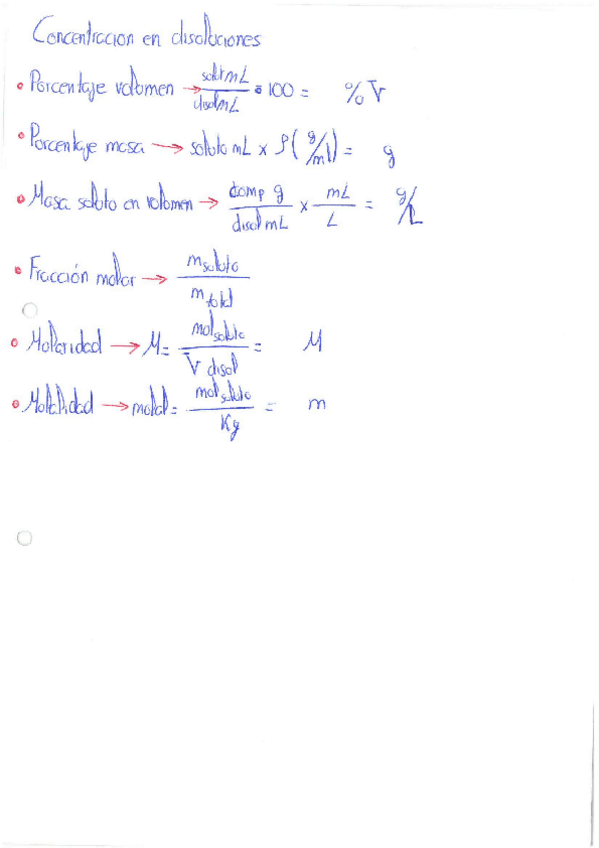 Concentracion en disoluciones
• Porcentaje volumen → solut mL / disol mL • 100 = % V
• Porcentaje masa → soluto mL x ρ (g/ml) = g
• Masa soluto en volumen → comp g / disol mL x mL / L = g/L
• Fracción molar → m soluto / m total
• Molaridad → M = mol soluto / V disol = M
• Molalidad → molal = mol soluto / Kg = m